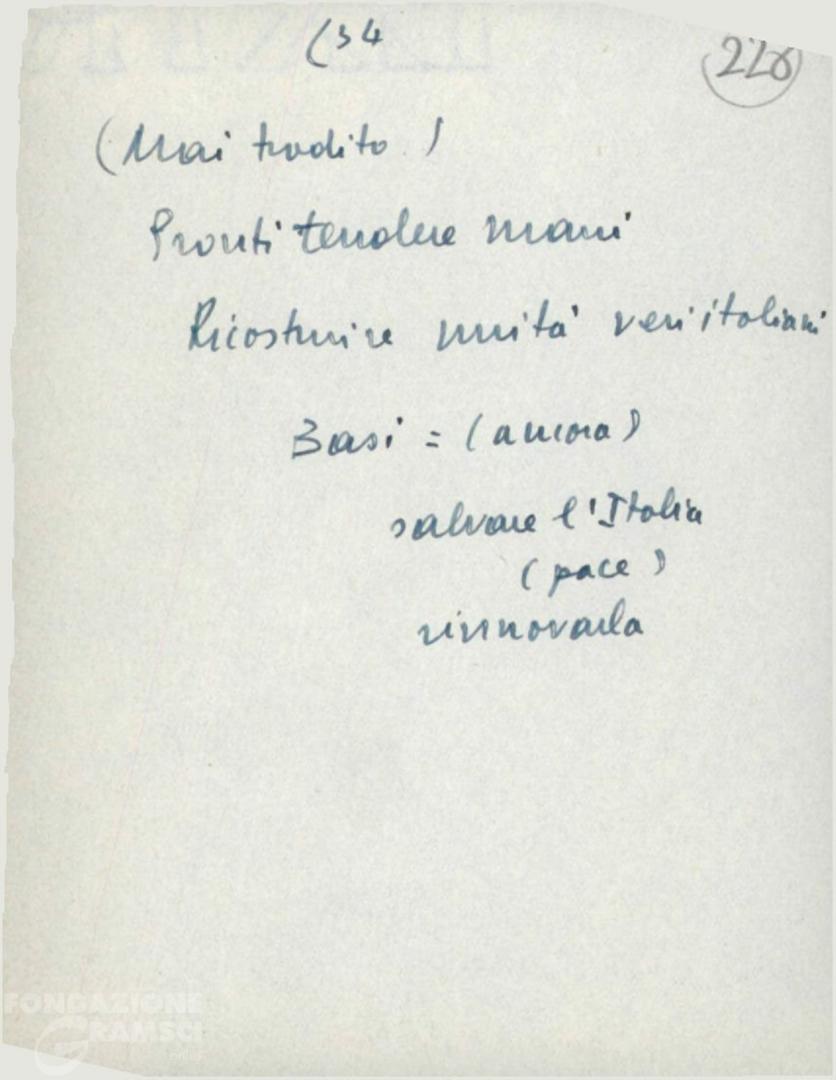 (34
228
(Mai tradito)
Pronti tendere mani
Ricostruire unità veri italiani
Basi = (ancora)
salvare l'Italia
(pace)
rinnovarla
FONDAZIONE
GRAMSCI